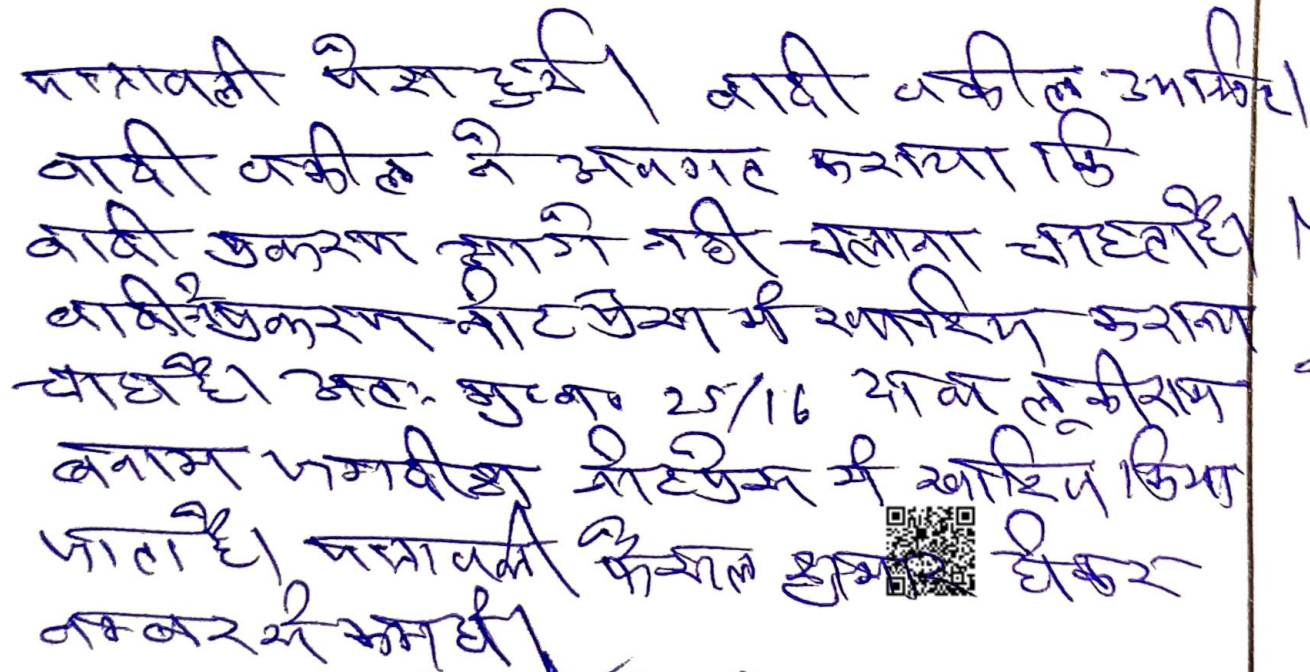 पत्रावली पेश हुई। वादी वकील उपस्थित।
वादी वकील ने अवगत कराया कि
वादी प्रकरण आगे नही चलाना चाहता है।
वादी प्रकरण नोटप्रेस में खारिज कराना
चाहा है। अतः मु०न० 25/16 लूकीराम
बनाम जगदीश नोटप्रेस में खारिज किया
जाता है। पत्रावली फैसल शुमार होकर
नम्बर से कम हो।